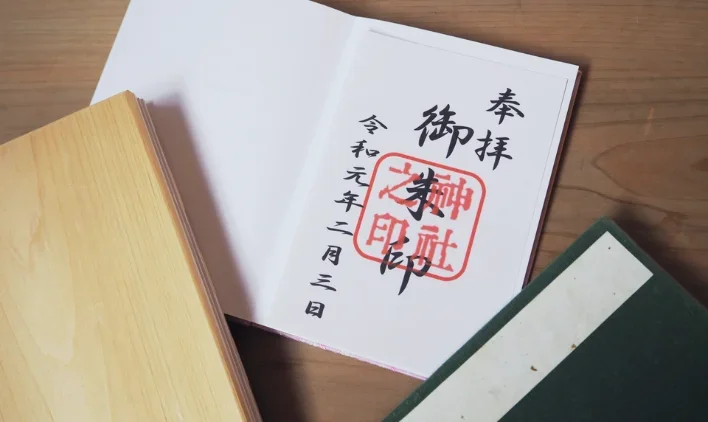 奉拝
御朱印
神社之印
令和元年二月三日